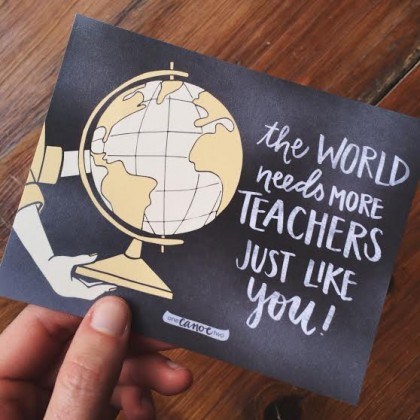 the WORLD
needs MORE
TEACHERS
JUST LIKE
you!
one canoe two